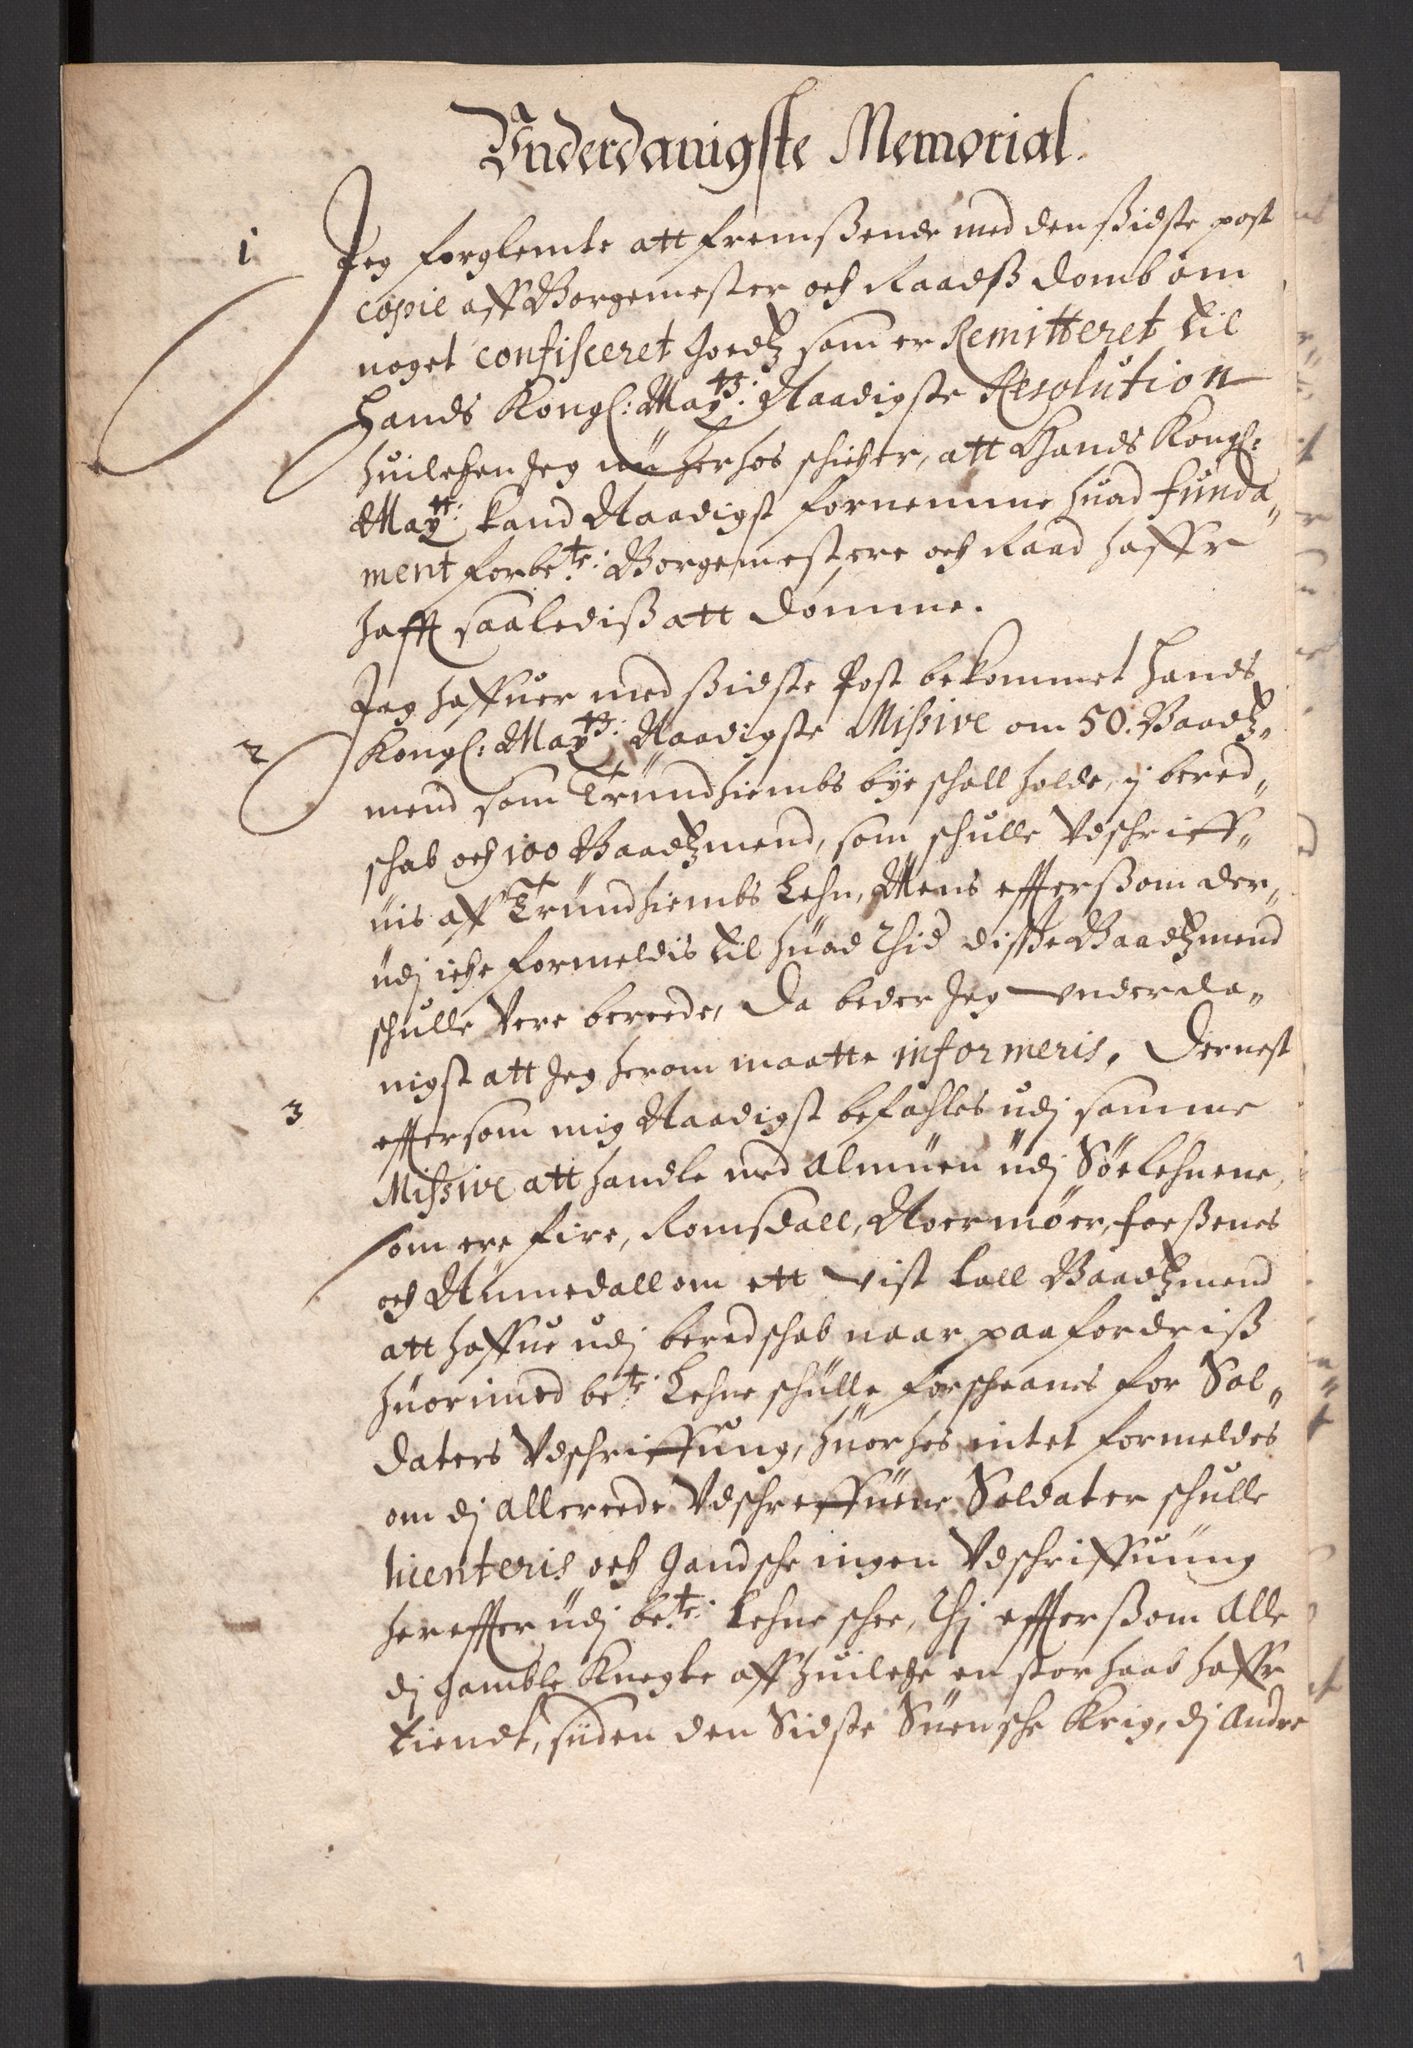 Vnderdanigste Memorial.
1 Jeg forglemte att fremßende med den ßidste post
copie aff Borgemester och Raadß domb om
noget confisceret Goedtz som er Remitteret til
Hands Kongl: Maytz: Naadigste Resolution
huilchen Jeg nu herhos schicher, att Hands Kongl:
Maytt: kand Naadigst fornemme huad funda„
ment forbete: Borgemestere och Raad haffr
hafft saaledißatt dømme.
Jeg haffuer med ßidste Post bekommet Hands
2 Kongl: Maytz: Naadigste Missive om 50. Baadtz„
mend som Trundhiembs bye schall holde, j bered„
schab och 100 Baadtzmend, som schulle Vdschriff„
uis aff Trundhiembs Lehn, Mens effterßom der„
udj iche formeldis til huad Thid disse Baadtzmend
schulle Vere bereede, Da beder Jeg vnderda„
nigst att Jeg herom maatte informeris. Dernest
3 effter som mig Naadigst befahles udj samme
Missive att handle med Almuen udj Søelehnene,
som ere fire, Romsdall, Noermøer, foeßenes
och Numedall om ett vist tall Baadtzmend
att haffue udj beredschab naar paafordriß
huorimod bete: Lehne schulle forschaanes for Sol„
daters Vdschriffung, huorhos intet formeldes
om dj allereede Vdschreffuene Soldater schulle
licenteris och gandsche ingen Vdschriffuung
hereffter udj bete: Lehne schee, Thj effterßom Alle
dj gamble Knegte aff huilche en stor haab haffr
tiendt, siden den Sidste Suensche Krig, dj Andre
1